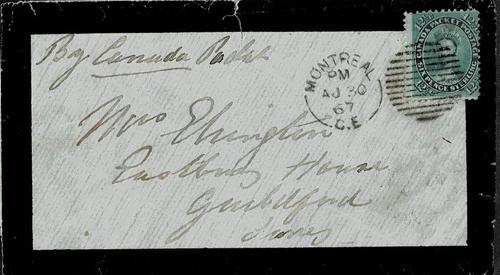 By Canada Packet
CANADA PACKET POSTAGE
SIX PENCE STERLING
12½
MONTREAL
PM
AU 30
67
C.E
Mrs Elrington
House
Guildford
Surrey